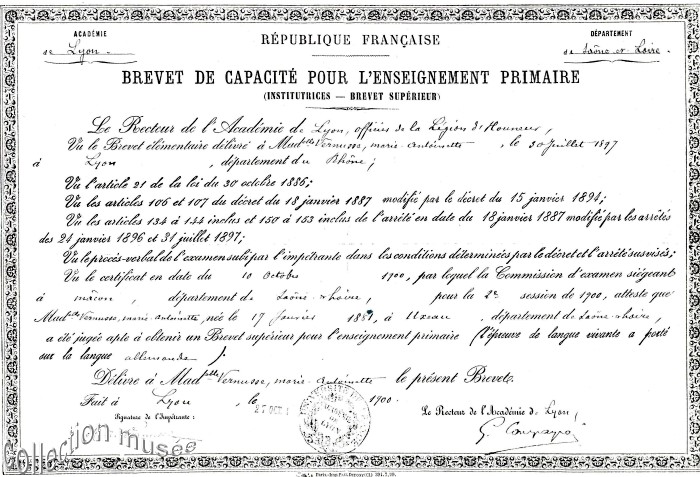 ACADÉMIE
de Lyon.
RÉPUBLIQUE FRANÇAISE
DÉPARTEMENT
de Saône et Loire
BREVET DE CAPACITÉ POUR L'ENSEIGNEMENT PRIMAIRE
(INSTITUTRICES — BREVET SUPÉRIEUR)
Le Recteur de l'Académie de Lyon, officier de la Légion d'Honneur,
Vu le Brevet élémentaire délivré à Mad elle Vernusse, marie-Antoinette, le 30 juillet 1897
à Lyon, département du Rhône;
Vu l'article 21 de la loi du 30 octobre 1886;
Vu les articles 106 et 107 du décret du 18 janvier 1887 modifié par le décret du 15 janvier 1894;
Vu les articles 134 à 144 inclus et 150 à 153 inclus de l'arrêté en date du 18 janvier 1887 modifié par les arrêtés
des 24 janvier 1896 et 31 juillet 1897;
Vu le procès-verbal de l'examen subi par l'impétrante dans les conditions déterminées par le décret et l'arrêté susvisés;
Vu le certificat en date du 10 Octobre 1900, par lequel la Commission d'examen siégeant
à mâcon, département de Saône-&-Loire, pour la 2e session de 1900, atteste que
Mad elle Vernusse, marie-antoinette, née le 17 Janvier 1881, à Uxeau, département de Saône-&-Loire,
a été jugée apte à obtenir un Brevet supérieur pour l'enseignement primaire (l'épreuve de langue vivante a porté
sur la langue allemande);
Délivre à Mad elle Vernusse, marie-Antoinette le présent Brevet.
Fait à Lyon, le 25 OCT 1900.
Signature de l'Impétrante:
Le Recteur de l'Académie de Lyon,
G. Compayré
Collection musée